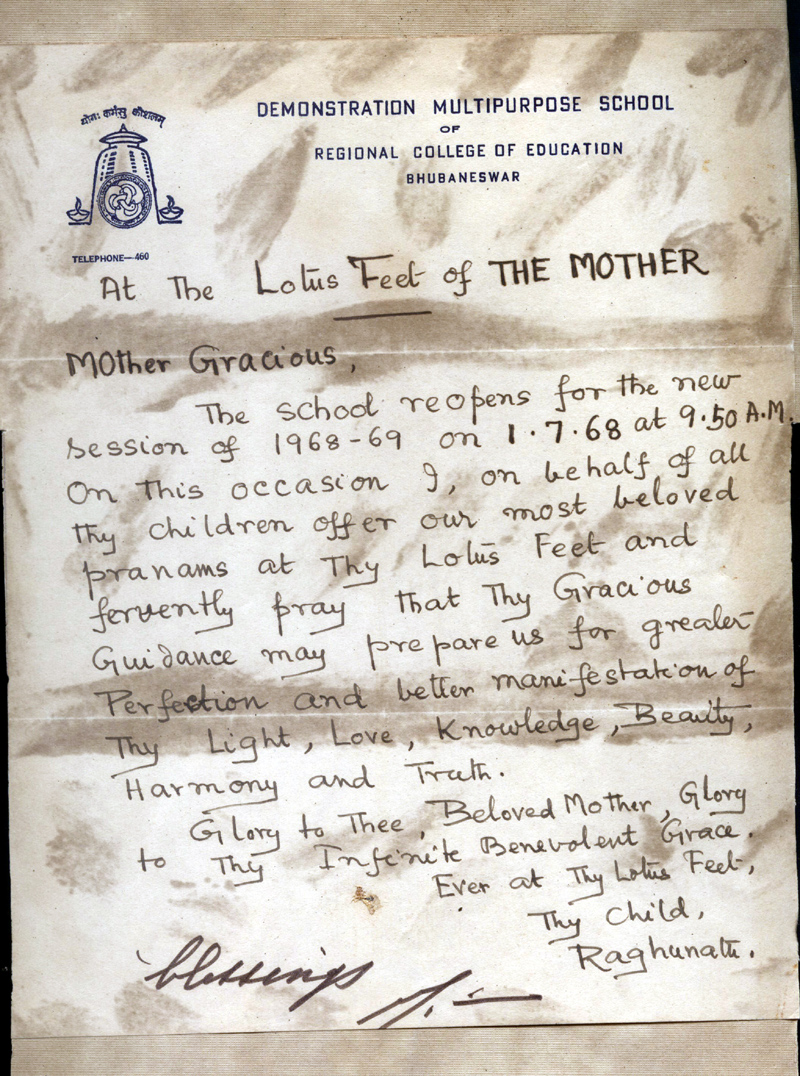 योगः कर्मसु कौशलम्
DEMONSTRATION MULTIPURPOSE SCHOOL
OF
REGIONAL COLLEGE OF EDUCATION
BHUBANESWAR
TELEPHONE—460
At The Lotus Feet of THE MOTHER
Mother Gracious,
The school reopens for the new
session of 1968-69 on 1.7.68 at 9.50 A.M.
On this occasion I, on behalf of all
thy children offer our most beloved
pranams at Thy Lotus Feet and
fervently pray that Thy Gracious
Guidance may prepare us for greater
Perfection and better manifestation of
Thy Light, Love, Knowledge, Beauty,
Harmony and Truth.
Glory to Thee, Beloved Mother, Glory
to Thy Infinite Benevolent Grace.
Ever at Thy Lotus Feet,
Thy Child,
Raghunath.
blessings